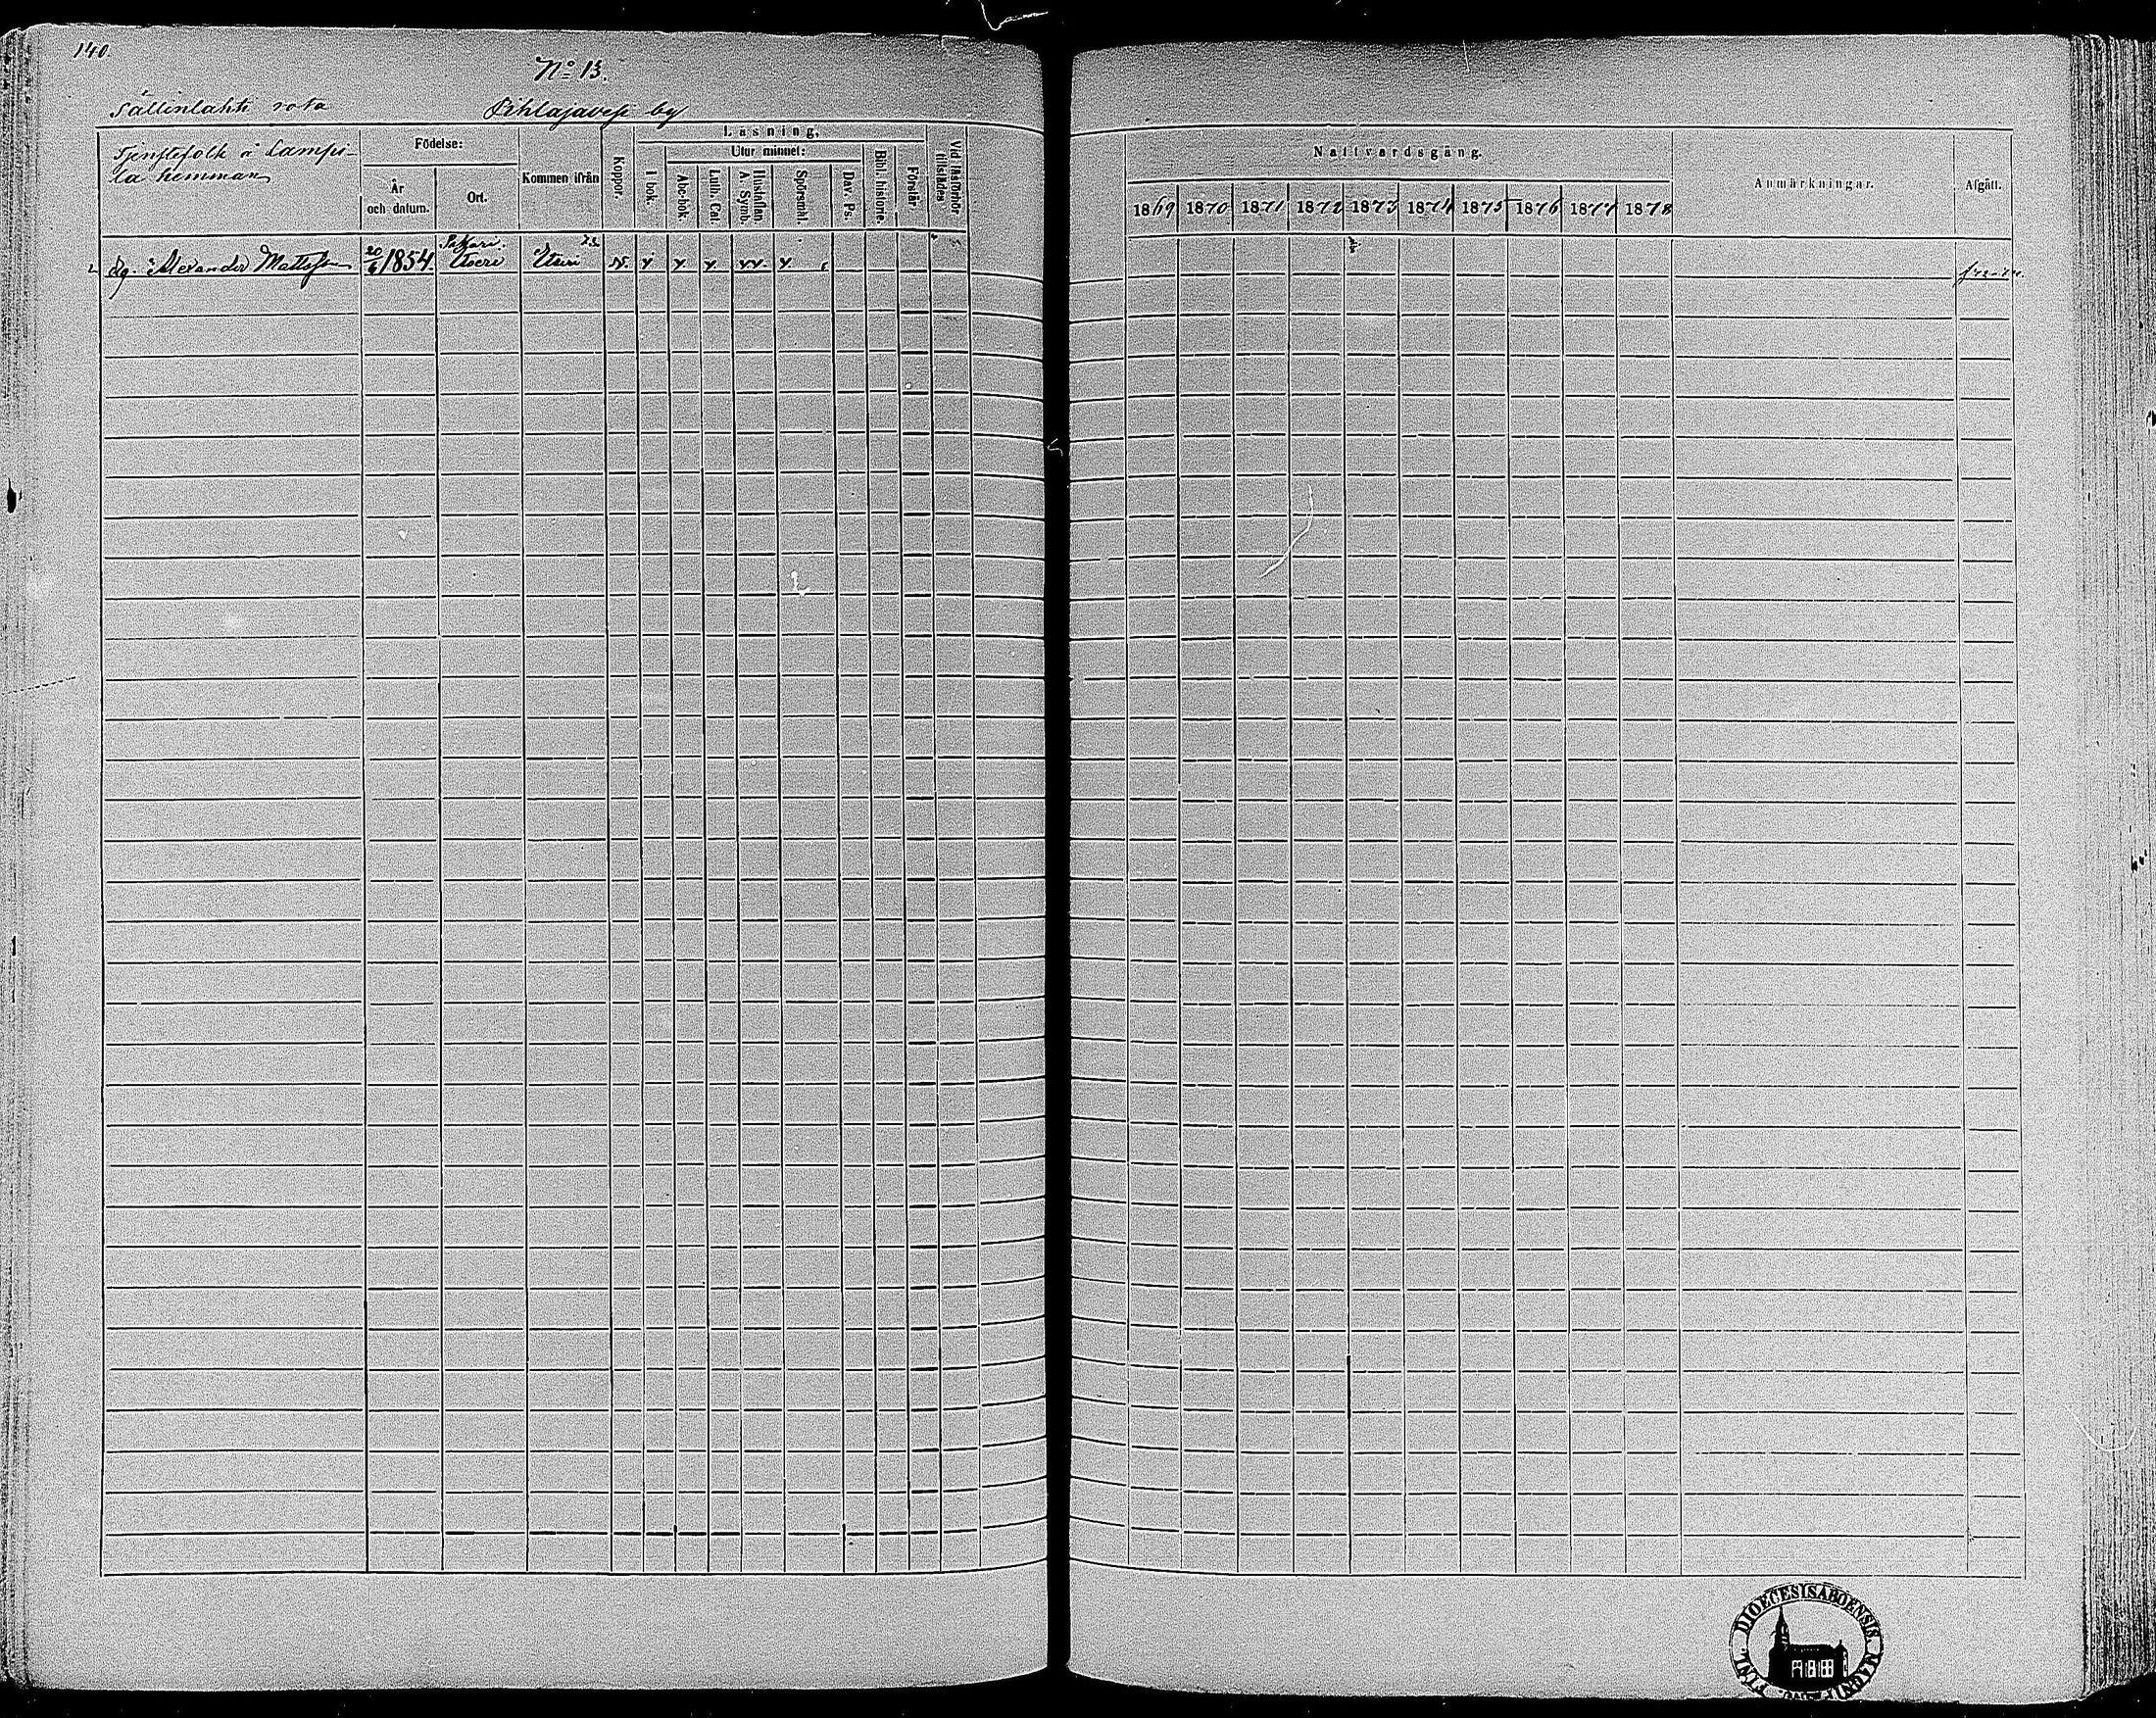 140.
No 13.
Sällinlahti rota Pihlajavesi by
Tjenstefolk å Lampi-
la hemman
Födelse:
År
och datum.
Ort.
Kommen ifrån
Koppor.
Läsning,
I bok.
Utur minnet:
Abc-bok.
Luth. Cat.
Hustaflan.
A. Symb.
Spörsmål.
Dav. Ps.
Bibl. historie.
Förstår.
Vid läsförhör
tillstädes
Dg. Alexander Mattsson 20/6 1854. Etseri Etseri
Nattvardsgång.
1869 1870 1871 1872 1873 1874 1875 1876 1877 1878
Anmärkningar.
Afgått.
DIOECESIS ABOENSIS